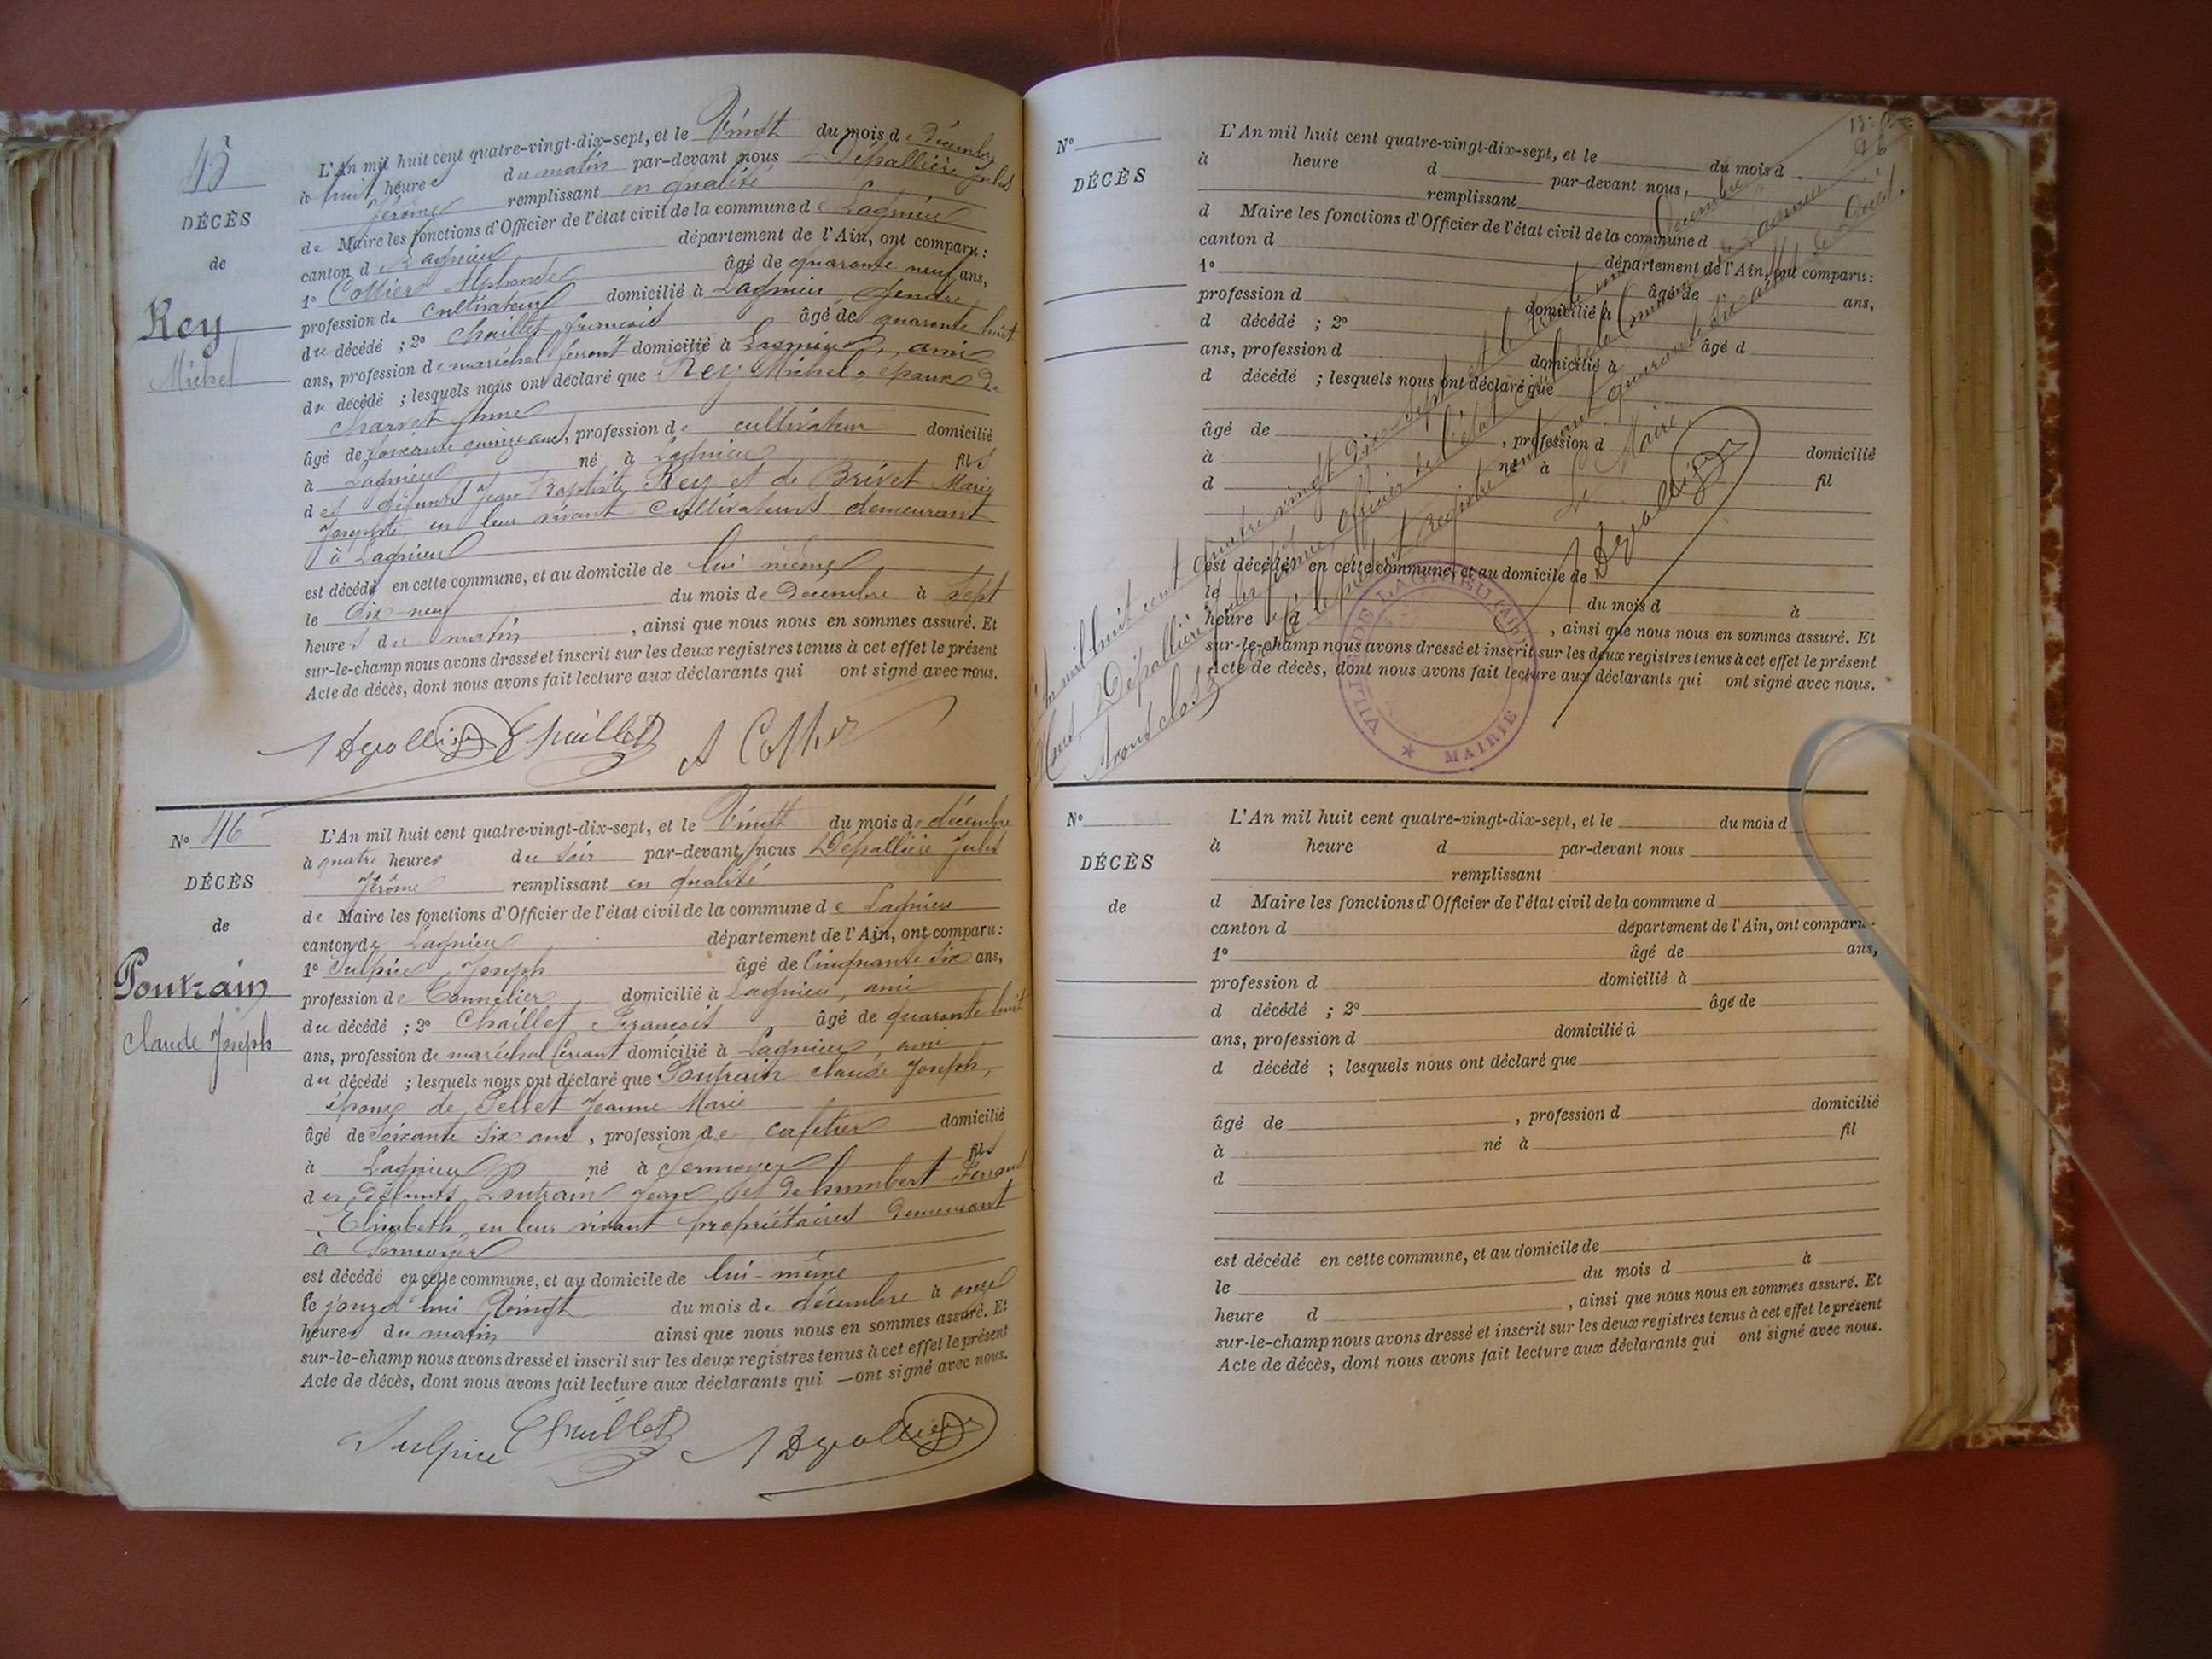 45
DÉCÈS
de
Rey
Michel
L'An mil huit cent quatre-vingt-dix-sept, et le Vingt du mois de Décembre
à huit heures du matin par-devant nous Dépallière Jules
Jérôme remplissant en qualité
de Maire les fonctions d'Officier de l'état civil de la commune de Lagnieu
canton de Lagnieu département de l'Ain, ont comparu:
1° Cottier Alphonse âgé de quarante neuf ans,
profession de cultivateur domicilié à Lagnieu, gendre
du décédé ; 2° Chaillet François âgé de quarante huit
ans, profession de maréchal ferrant domicilié à Lagnieu, ami
du décédé ; lesquels nous ont déclaré que Rey Michel, époux de
Charvet Anne
âgé de soixante quinze ans, profession de cultivateur domicilié
à Lagnieu né à Lagnieu fils
des défunts Jean Baptiste Rey et de Brivet Marie
Josephte en leur vivant cultivateurs demeurant
à Lagnieu
est décédé en cette commune, et au domicile de lui même
le dix-neuf du mois de Décembre à sept
heures du matin, ainsi que nous nous en sommes assuré. Et
sur-le-champ nous avons dressé et inscrit sur les deux registres tenus à cet effet le présent
Acte de décès, dont nous avons fait lecture aux déclarants qui ont signé avec nous.
Chaillet A Cottier
N° 46
DÉCÈS
de
Poutrain
Claude Joseph
L'An mil huit cent quatre-vingt-dix-sept, et le Vingt du mois de décembre
à quatre heures du soir par-devant nous Dépallière Jules
Jérôme remplissant en qualité
de Maire les fonctions d'Officier de l'état civil de la commune de Lagnieu
canton de Lagnieu département de l'Ain, ont comparu:
1° Sulpice Joseph âgé de Cinquante six ans,
profession de Tonnelier domicilié à Lagnieu, ami
du décédé ; 2° Chaillet François, âgé de quarante huit
ans, profession de maréchal ferrant domicilié à Lagnieu, ami
du décédé ; lesquels nous ont déclaré que Poutrain Claude Joseph,
époux de Pellet Jeanne Marie
âgé de soixante six ans, profession de cafetier domicilié
à Lagnieu né à Sermoyer fils
des défunts Poutrain Jean et de humbert Ferrand
Elisabeth, en leur vivant propriétaires demeurant
à Sermoyer
est décédé en cette commune, et au domicile de lui-même
le jourd'hui Vingt du mois de décembre à onze
heures du matin ainsi que nous nous en sommes assuré. Et
sur-le-champ nous avons dressé et inscrit sur les deux registres tenus à cet effet le présent
Acte de décès, dont nous avons fait lecture aux déclarants qui — ont signé avec nous.
Sulpice Chaillet
N°
DÉCÈS
L'An mil huit cent quatre-vingt-dix-sept, et le du mois d
à heure d par-devant nous,
remplissant
d Maire les fonctions d'Officier de l'état civil de la commune d
canton d département de l'Ain, ont comparu:
1° âgé de ans,
profession d domicilié à
d décédé ; 2° âgé d
ans, profession d domicilié à
d décédé ; lesquels nous ont déclaré que
âgé de , profession d domicilié
à né à fil
d
est décédé en cette commune, et au domicile de
le du mois d à
heure d , ainsi que nous nous en sommes assuré. Et
sur-le-champ nous avons dressé et inscrit sur les deux registres tenus à cet effet le présent
Acte de décès, dont nous avons fait lecture aux déclarants qui ont signé avec nous.
mil huit cent quatre vingt dix-sept et le trente un Décembre
Nous, Dépallière Jules Jérôme, officier de l'état civil de la Commune de Lagnieu
Avons clos le présent registre contenant quarante six actes de décès.
Le Maire
VILLE DE LAGNIEU (Ain)
* MAIRIE *
N°
DÉCÈS
de
L'An mil huit cent quatre-vingt-dix-sept, et le du mois d
à heure d par-devant nous
remplissant
d Maire les fonctions d'Officier de l'état civil de la commune d
canton d département de l'Ain, ont comparu
1° âgé de ans,
profession d domicilié à
d décédé ; 2° âgé de
ans, profession d domicilié à
d décédé ; lesquels nous ont déclaré que
âgé de , profession d domicilié
à né à fil
d
est décédé en cette commune, et au domicile de
le du mois d à
heure d , ainsi que nous nous en sommes assuré. Et
sur-le-champ nous avons dressé et inscrit sur les deux registres tenus à cet effet le présent
Acte de décès, dont nous avons fait lecture aux déclarants qui ont signé avec nous.